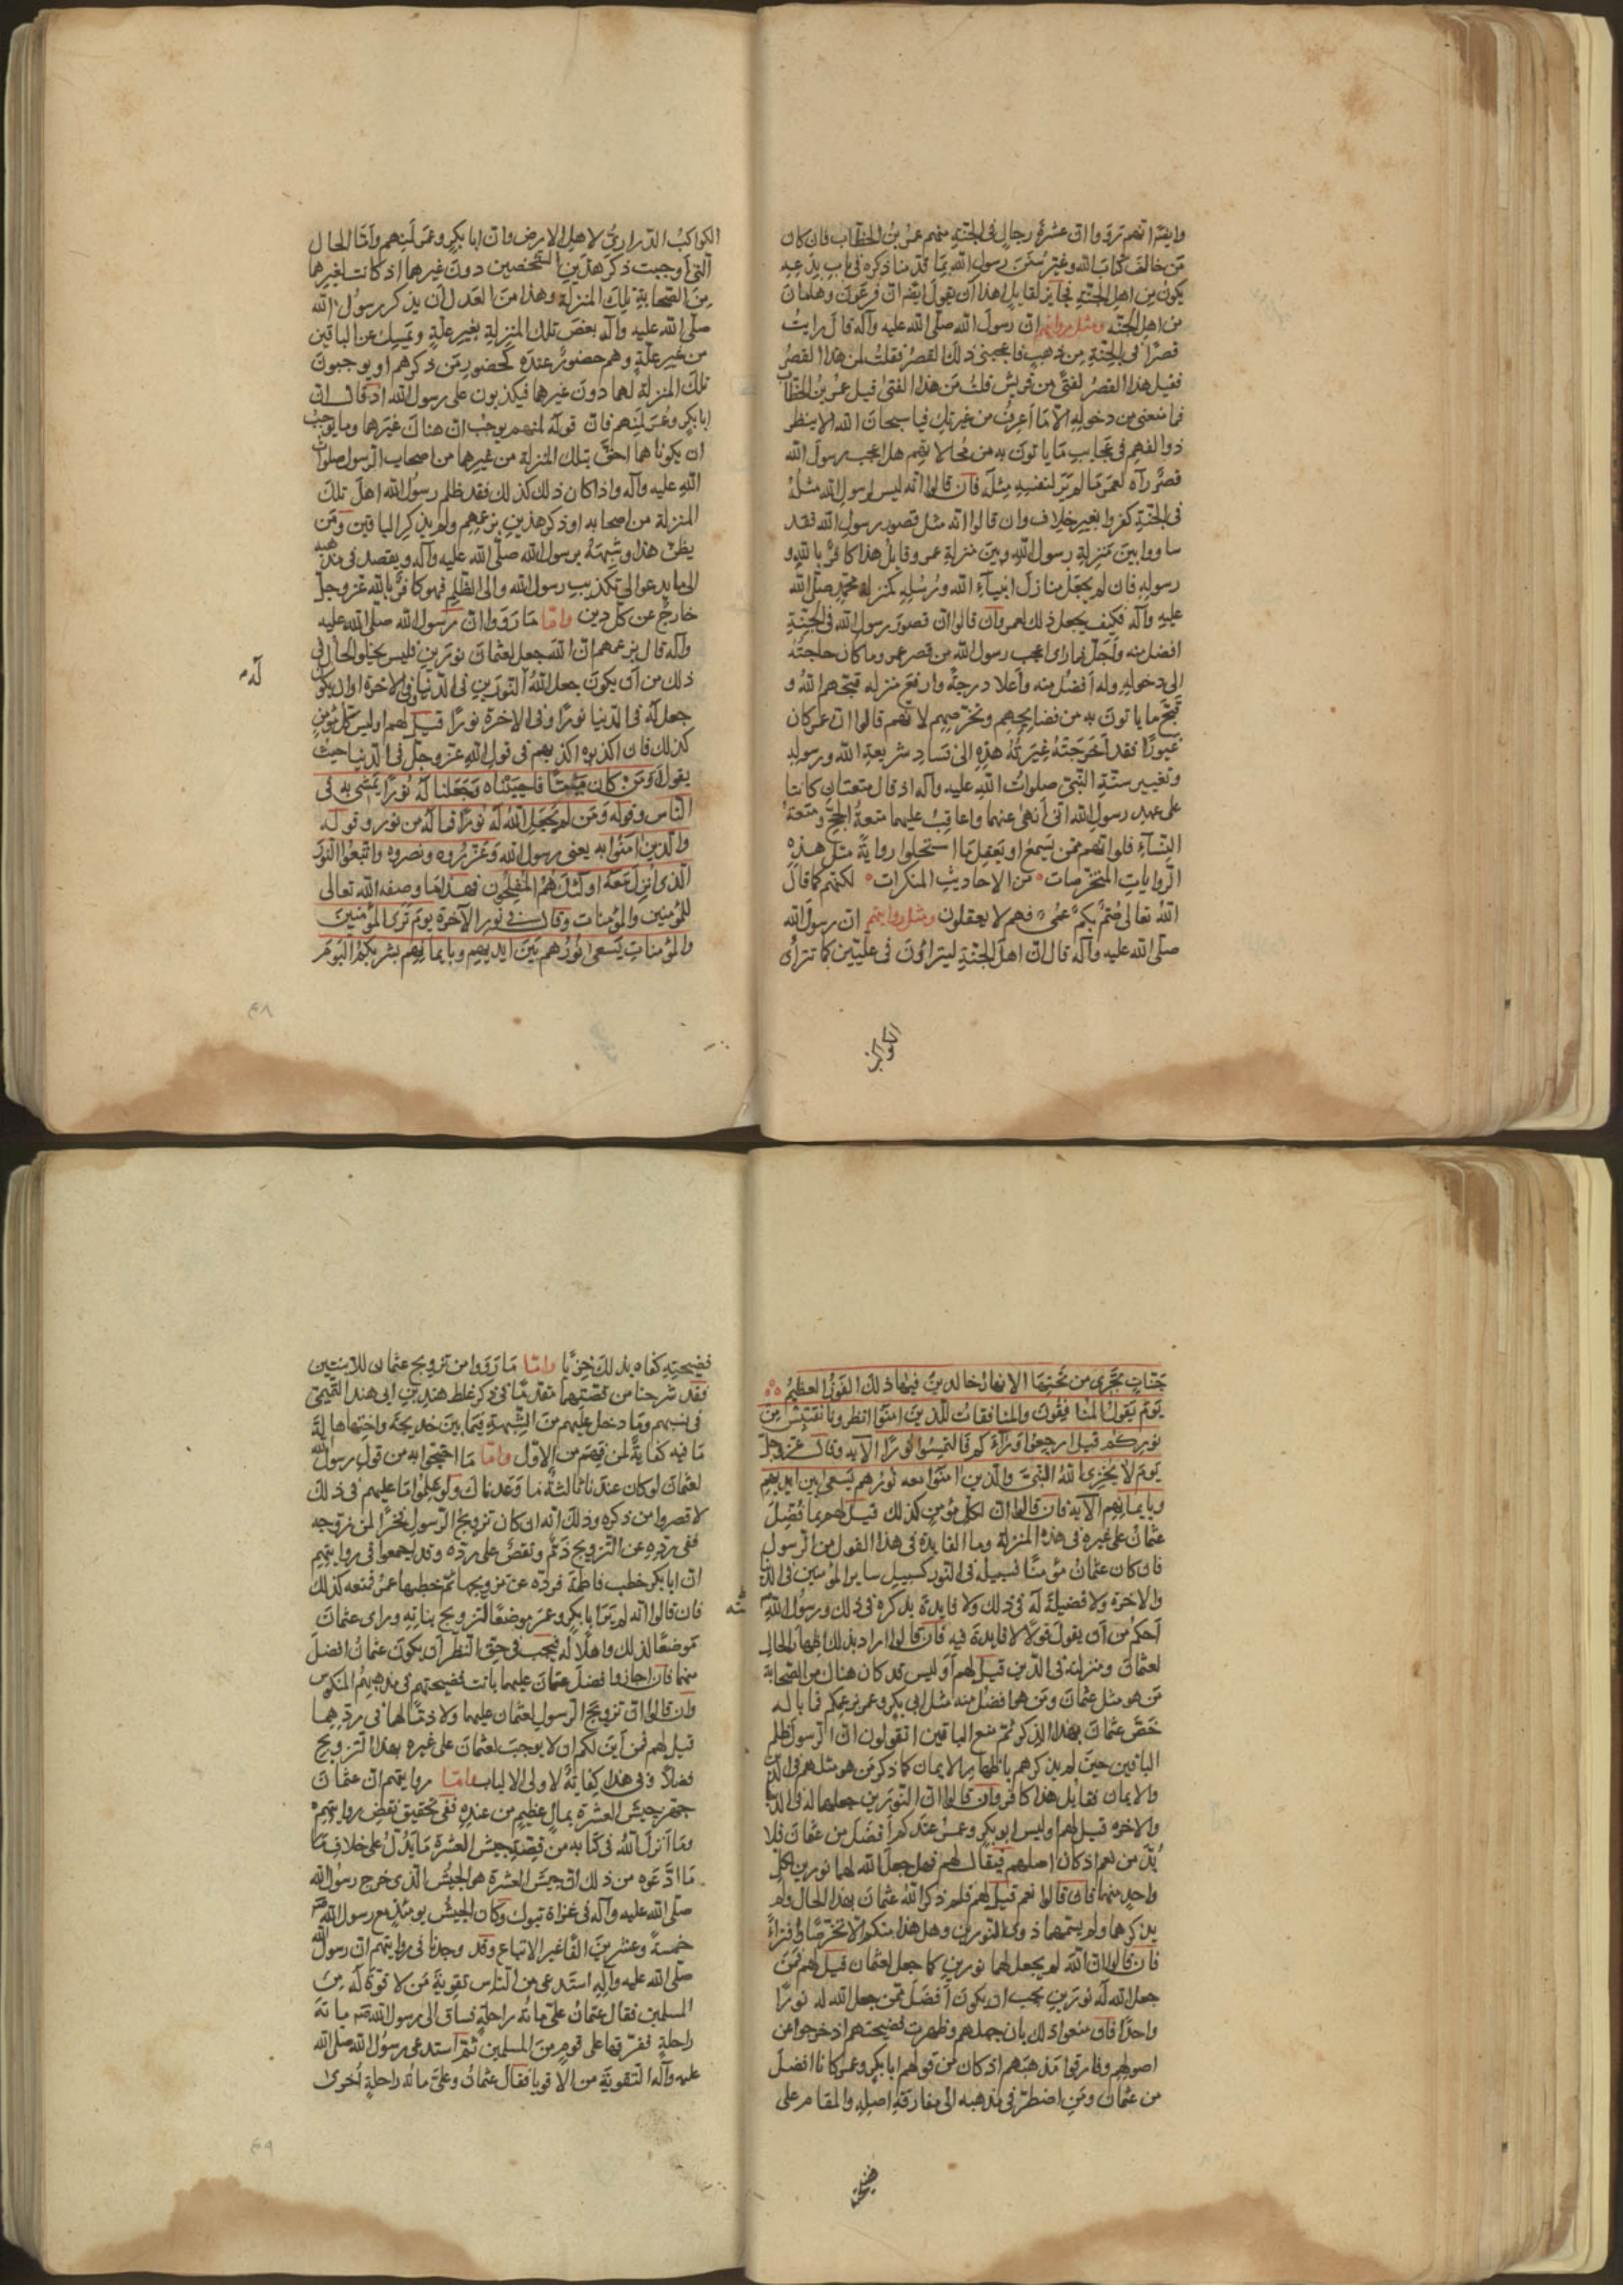 وايضا انهم رووا ان عشرة رجال في الجنة منهم عمر بن الخطاب فان كان
من خالف كتاب الله وغير سنن رسول الله بما قدمنا ذكره في باب بدعه
يكون من اهل الجنة فجايز لقايل هذا ان يقول ايضا ان فرعون وهامان
من اهل الجنه ومثل روايتهم ان رسول الله صلى الله عليه وآله قال رايت
قصرا في الجنة من ذهب فاعجبني ذلك القصر فقلت لمن هذا القصر
فقيل هذا القصر لفتى من قريش قلت من هذا الفتى قيل عمر بن الخطاب
فما منعني من دخوله الا ما اعرف من غيرتك فيا سبحان الله الا ينظر
ذوا الفهم في عجايب ما ياتون به من محالاتهم هل اعجب رسول الله
قصر رآه لعمر ما لم ير لنفسه مثله فان قالوا انه ليس لرسول الله مثله
في الجنة كفروا بغير خلاف وان قالوا انه مثل قصور رسول الله فقد
ساووا بين منزلة رسول الله وبين منزلة عمر وقايل هذا كافر بالله و
رسوله فان لم يجعل منازل انبياء الله ورسله كمنزلة محمد صلى الله
عليه وآله فكيف يجعل ذلك لعمر وان قالوا ان قصور رسول الله في الجنة
افضل منه واجل فما راى اعجب رسول الله من قصر عمر وما كان حاجته
الى دخوله وله افضل منه واعلا درجة وارفع منزله قبحهم الله و
قبح ما ياتون به من فضايحهم وتخرصهم لانهم قالوا ان عمر كان
غيورا فقد اخرجته غيرته هذه الى فساد شريعة الله ورسوله
وتغيير سنة النبي صلوات الله عليه وآله اذ قال متعتان كانتا
على عهد رسول الله اني انهى عنهما واعاقب عليهما متعة الحج ومتعة
النساء فلو انهم ممن يسمع او يعقل ما استحلوا رواية مثل هذه
الروايات المتخرصات من الاحاديث المنكرات لكنهم كما قال
الله تعالى صم بكم عمى فهم لا يعقلون ومثل روايتهم ان رسول الله
صلى الله عليه وآله قال ان اهل الجنة ليتراؤون في عليين كما تتراأى
الكواكب
الكواكب الدراري لاهل الارض وان ابا بكر وعمر لمنهم واما الحال
التي اوجبت ذكر هذين الشخصين دون غيرهما اذ كانت لغيرهما
من الصحابة تلك المنزلة وهذا من العدل ان يذكر رسول الله
صلى الله عليه وآله بعض تلك المنزلة بغير علة ويمسك عن الباقين
من غير علة وهم حضور عنده كحضور من ذكرهم او يوجبون
تلك المنزلة لهما دون غيرهما فيكذبون على رسول الله اذ قال ان
ابا بكر وعمر لمنهم فان قوله لمنهم يوجب ان هناك غيرهما وما يوجب
ان يكونا هما احق بتلك المنزلة من غيرهما من اصحاب الرسول صلوات
الله عليه وآله واذا كان ذلك كذلك فقد ظلم رسول الله اهل تلك
المنزلة من اصحابه اذ ذكر هذين بزعمهم ولم يذكر الباقين ومن
يظن هذا وشبهه برسول الله صلى الله عليه وآله ويقصد في مذهبه
الى ما يدعو الى تكذيب رسول الله والى الظلم فهو كافر بالله عز وجل
خارج عن كل دين واما ما رووا ان رسول الله صلى الله عليه
وآله قال بزعمهم ان الله جعل لعثمان نورين فليس يخلو الحال في
ذلك من ان يكون جعل الله النورين في الدنيا في الاخرة او ان يكون
له
جعل له في الدنيا نورا وفي الاخرة نورا قيل لهم اوليس كل مؤمن
كذلك فان اكذبوه اكذبهم في قول الله عز وجل في الدنيا حيث
يقول او من كان ميتا فاحييناه وجعلنا له نورا يمشي به في
الناس وقوله ومن لم يجعل الله له نورا فما له من نور وقوله
والذين امنوا به يعني رسول الله وعزروه ونصروه واتبعوا النور
الذي انزل معه اولئك هم المفلحون فهذا ما وصفه الله تعالى
للمؤمنين والمؤمنات وقال في نور الآخرة يوم ترى المؤمنين
والمؤمنات يسعى نورهم بين ايديهم وبايمانهم بشريكم اليوم
٤٨
جنات تجري من تحتها الانهار خالدين فيها ذلك الفوز العظيم
يوم يقول المنافقون والمنافقات للذين امنوا انظرونا نقتبس من
نوركم قيل ارجعوا وراءكم فالتمسوا نورا الآيه وقال عز وجل
يوم لا يخزي الله النبي والذين امنوا معه نورهم يسعى بين ايديهم
وبايمانهم الآيه فان قالوا ان لكل مؤمن كذلك قيل لهم بما فضل
عثمان على غيره في هذه المنزلة وما الفايدة في هذا القول من الرسول
فان كان عثمان مؤمنا فسبيله في النور كسبيل ساير المؤمنين في الدنيا
والاخرة ولا فضيلة له في ذلك ولا فايدة بذكره في ذلك ورسول الله
احكم من ان يقول قولا لا فايدة فيه فان قالوا اراد بذلك اظهار الحال
لعثمان ومنزلته في الدين قيل لهم اوليس قد كان هناك من الصحابة
من هو مثل عثمان ومن هو افضل منه مثل ابي بكر وعمر بزعمكم فما باله
خص عثمان بهذا الذكر ثم منع الباقين اتقولون ان الرسول ظلم
الباقين حين لم يذكرهم باظهار الايمان كما ذكر من هو مثلهم في الدين
والايمان فقايل هذا كافر وان قالوا ان النورين جعلهما له في الدنيا
والاخره قيل لهم اوليس ابو بكر وعمر عندكم افضل من عثمان فلا
بد من نعم اذ كان اصلهم فيقال لهم فهل جعل الله لهما نورين لكل
واحد منهما فان قالوا نعم قيل لهم فلم ذكر الله عثمان بهذا الحال ولم
يذكرهما ولم يسمهما ذوي النورين وهل هذا منكم الا تخرصا وافتراء
فان قالوا ان الله لم يجعل لهما نورين كما جعل لعثمان قيل لهم فمن
جعل الله له نورين يجب ان يكون افضل ممن جعل الله له نورا
واحدا فان منعوا ذلك بان جهلهم وظهرت فضيحتهم اذ خرجوا عن
اصولهم وفارقوا مذهبهم اذ كان من قولهم ابا بكر وعمر كانا افضل
من عثمان ومن اضطر في مذهبه الى مفارقة اصله والمقام على
فضيحته
فضيحته كفاه بذلك خزيا واما ما رووا من تزويج عثمان للابنتين
فقد شرحنا من قصتهما متقدما في ذكر غلط هند بن ابي هند التميمي
في نسبهم وما دخل عليهم من الشبهة فيما بين خديجة واختها هالة
ما فيه كفاية لمن فهم من الاول واما ما احتجوا به من قول رسول الله
لعثمان لو كان عندنا ثالثة ما وعدناك ولو علموا ما عليهم في ذلك
لاقصروا من ذكره وذلك انه ان كان تزويج الرسول فخرا لمن زوجه
ففي رده عن التزويج ذم ونقص على رده وقد اجمعوا في روايتهم
ان ابا بكر خطب فاطمة فرده عن تزويجها ثم خطبها عمر فمنعه كذلك
فان قالوا انه لم ير ابا بكر وعمر موضعا لتزويج بناته وراى عثمان
موضعا لذلك واهلا له فيجب في حق النظر ان يكون عثمان افضل
منهما فان اجازوا فضل عثمان عليهما بانت فضيحتهم في مذهبهم المنكوس
وان قالوا ان تزويج الرسول لعثمان عليهما ولا ذما لهما في ردهما
قيل لهم فمن اين لكم ان لا يوجب لعثمان على غيره بهذا التزويج
فضلا وفي هذا كفاية لاولي الالباب واما روايتهم ان عثمان
جهز جيش العشرة بمال عظيم من عنده ففي تحقيق نقض روايتهم
وما انزل الله في كتابه من قصة جيش العشرة ما يدل على خلاف ما
ما ادعوه من ذلك ان جيش العشرة هو الجيش الذي خرج رسول الله
صلى الله عليه وآله في غزاة تبوك وكان الجيش يومئذ مع رسول الله
خمسة وعشرين الفا غير الاتباع وقد وجدنا في روايتهم ان رسول الله
صلى الله عليه وآله استدعى من الناس تقوية من لا قوة له من
المسلمين فقال عثمان علي مائة راحلة فساق الى رسول الله مائة
راحلة ففرقها على قوم من المسلمين ثم استدعى رسول الله صلى الله
عليه وآله التقوية من الاقويا فقال عثمان وعلي مائة راحلة اخرى
٤٩